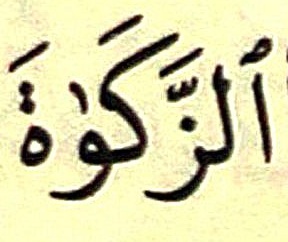 ٱلزَّكَوٰةَ